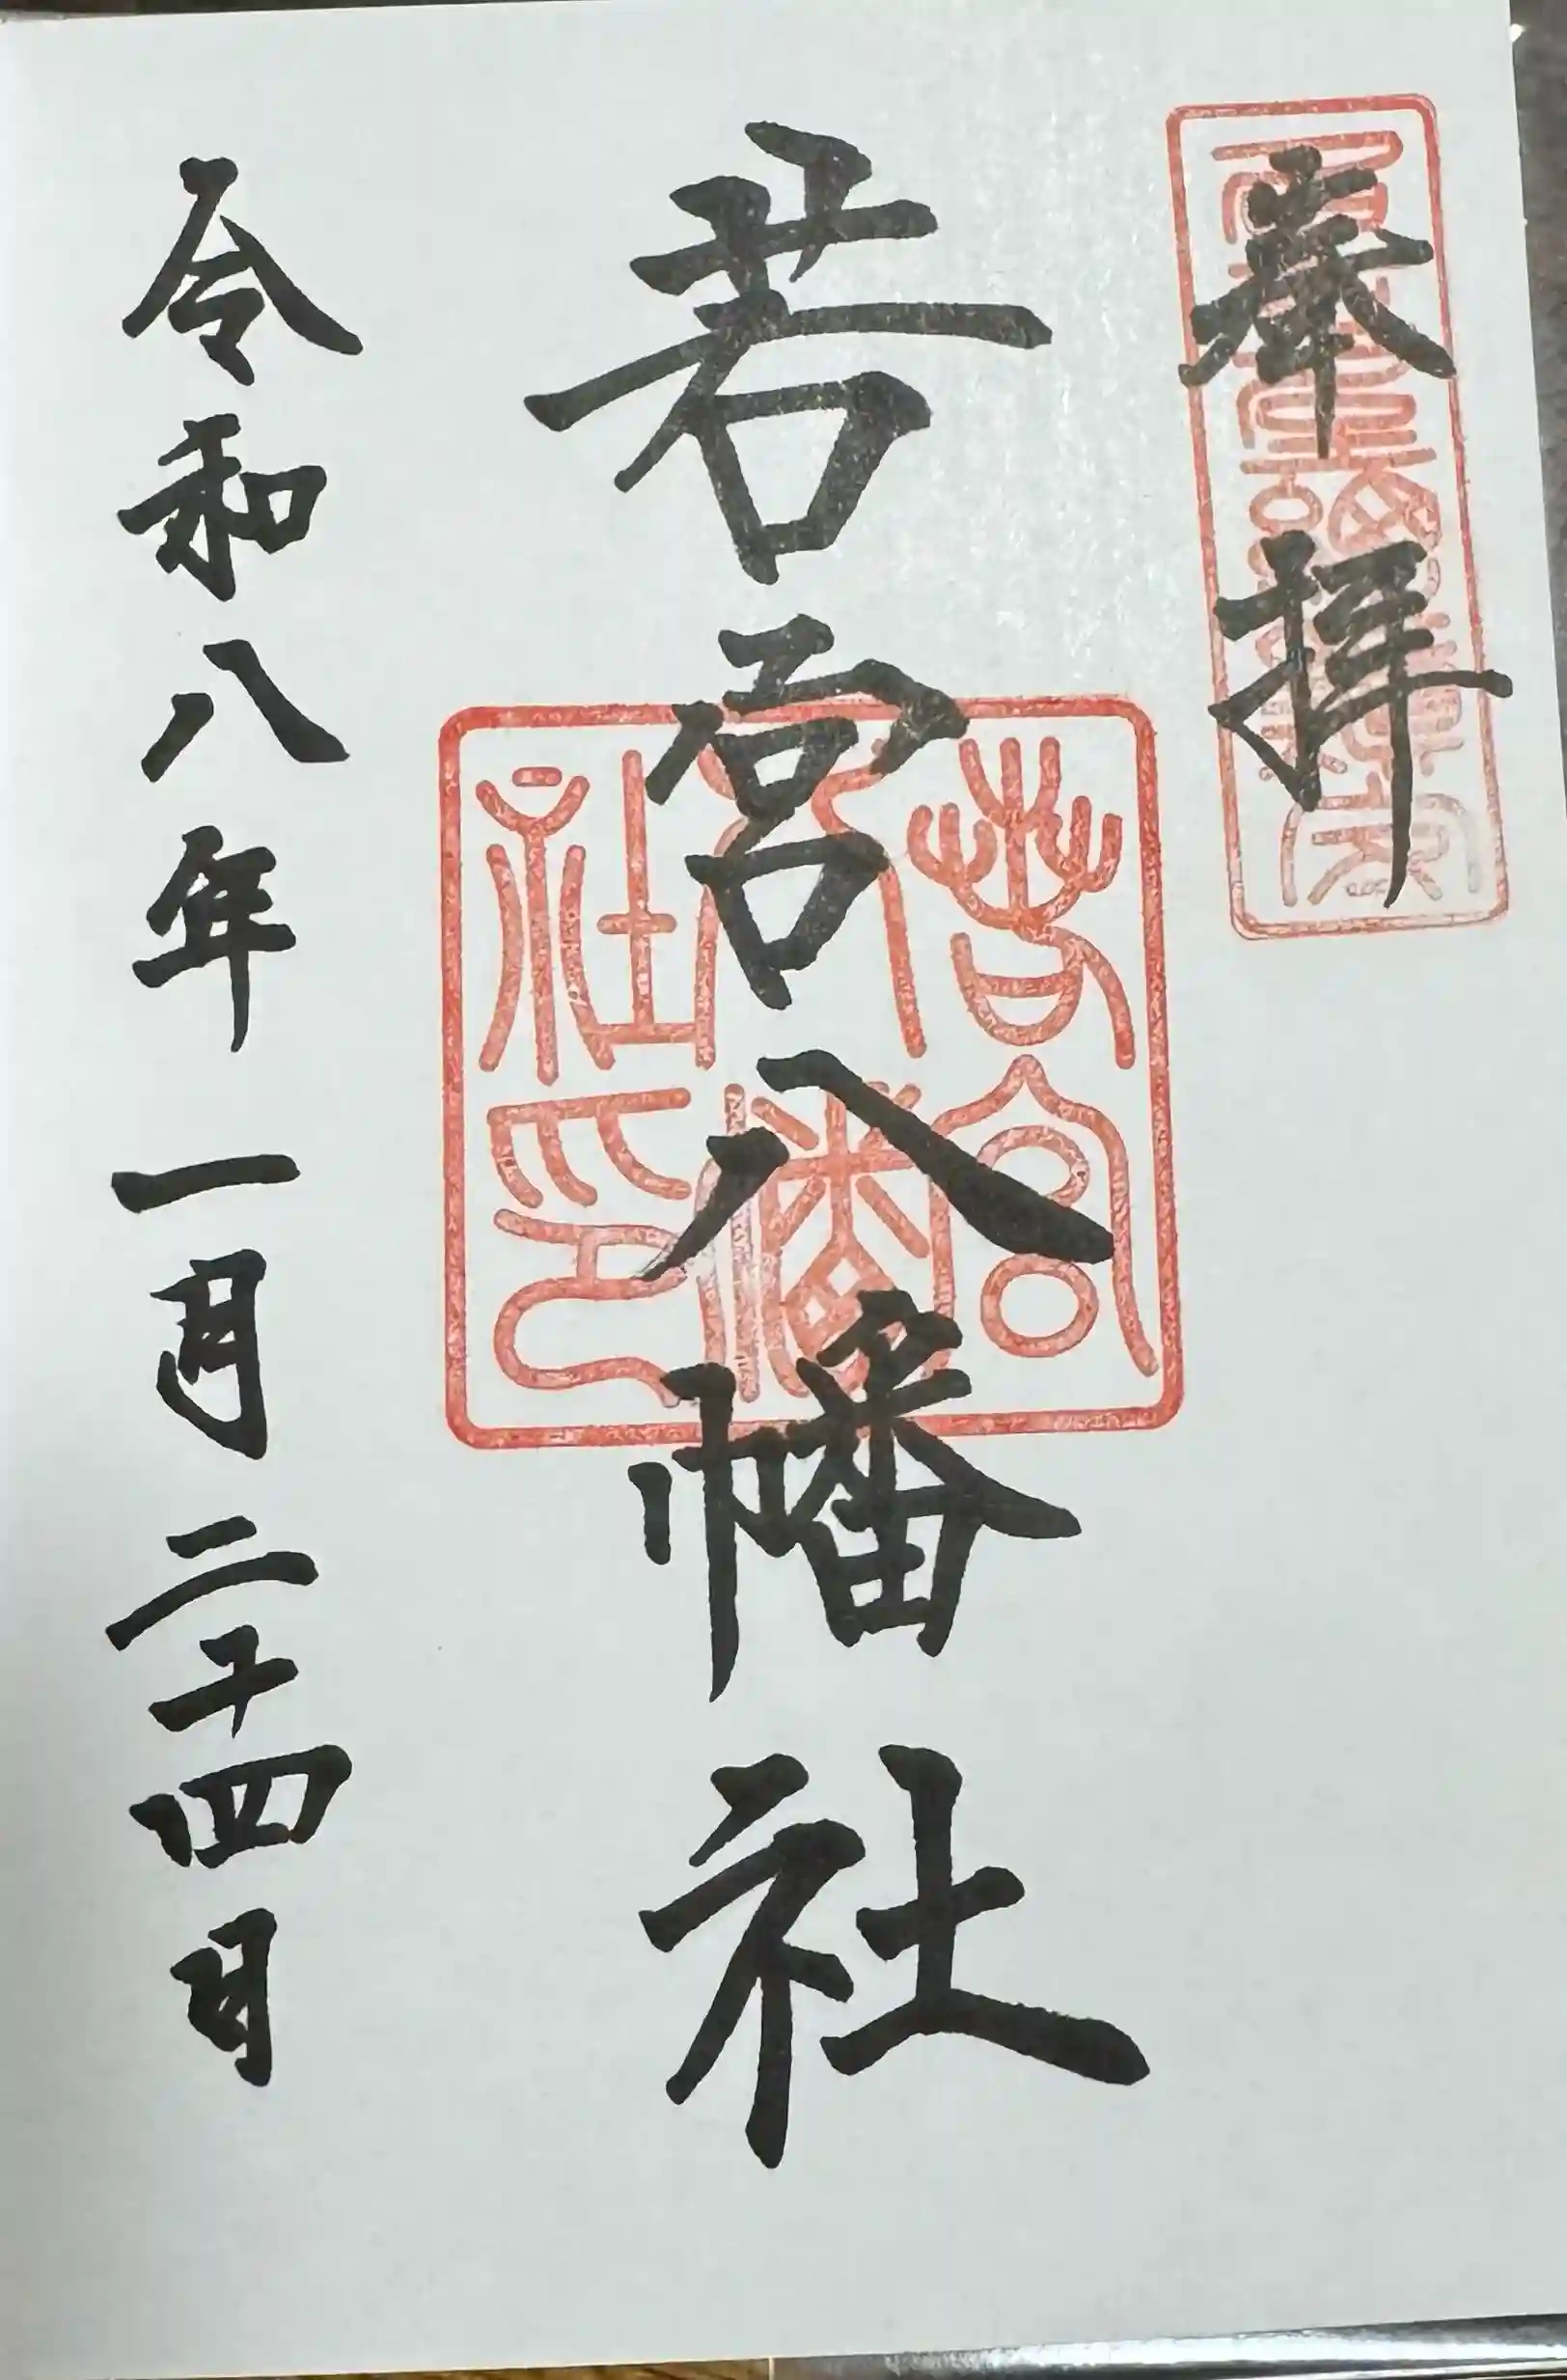 奉拝
若宮八幡社
若宮八幡社印
令和八年一月二十四日